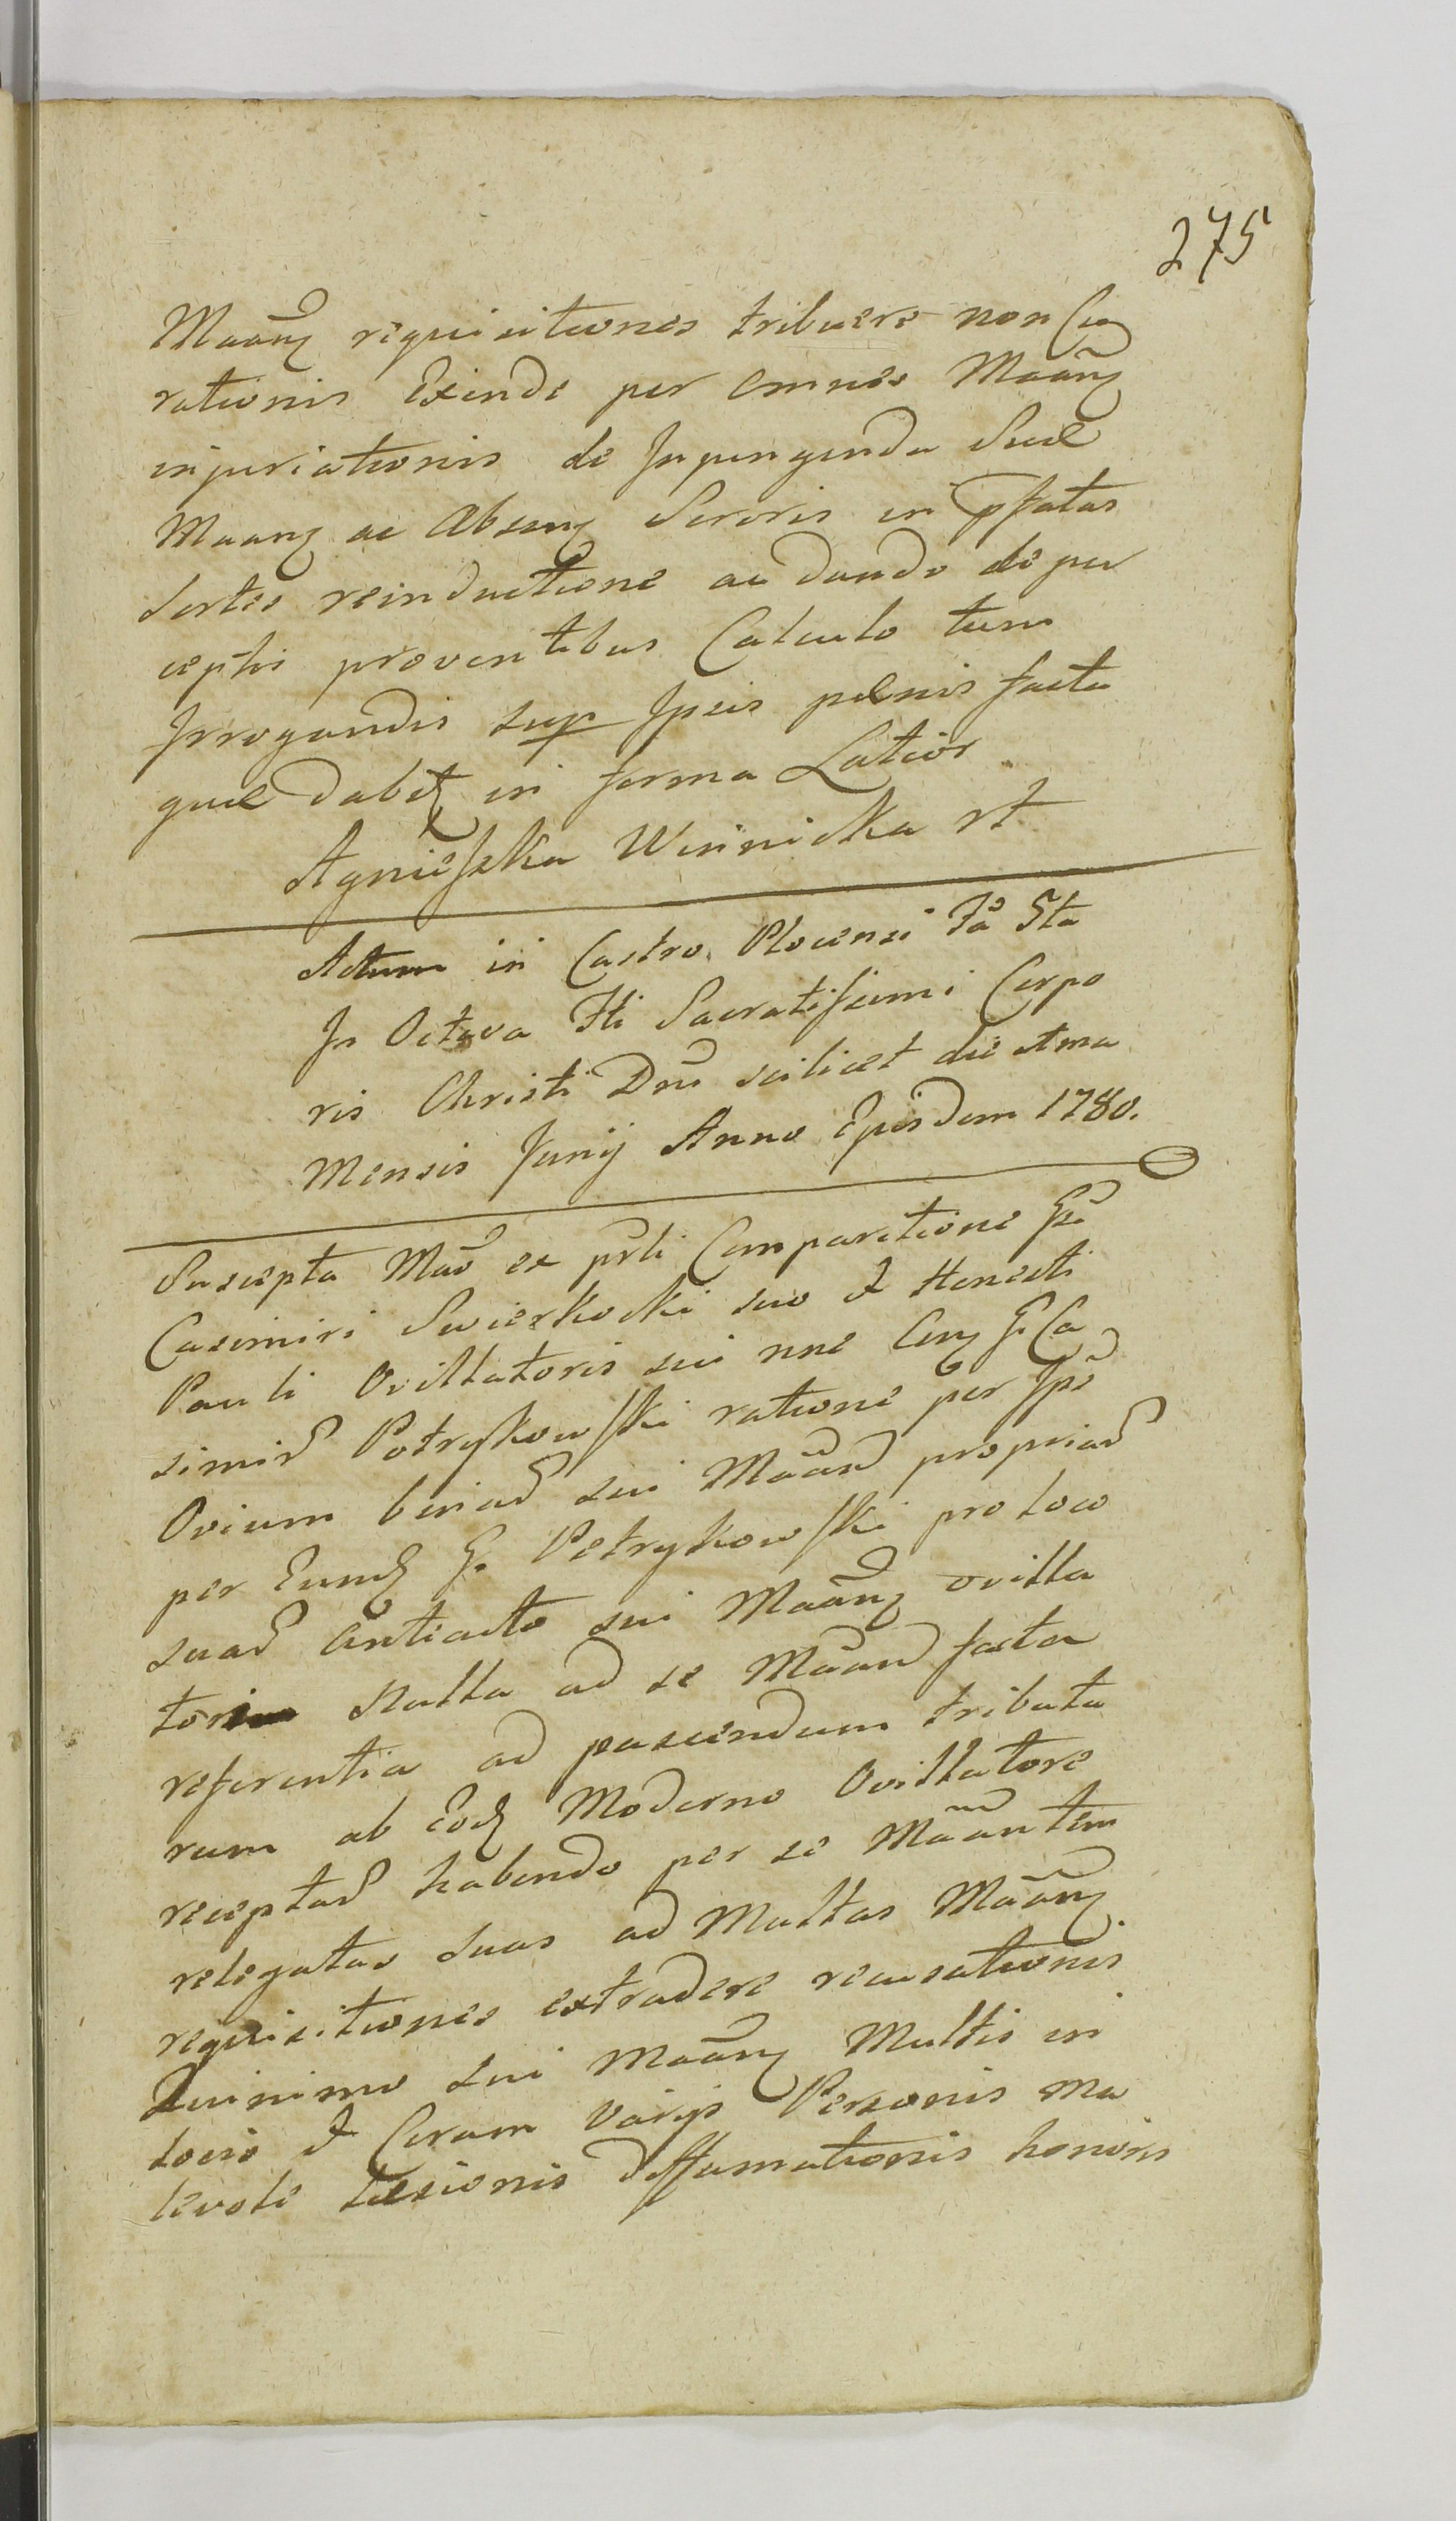 275
Maanz requisitiones tribuere non Cu
rationis Exinde per omnes Maanz
injuriationis de Impingenda Suae
Maanz ac Absenz Sororis in pfatas
Sortes reinductione ac dando de per
ceptis proventibus Calculo tum
Irrogandis sup Ipsis paenis facta
quae dabitz in forma Latior
Agnieszka Winnicka rt
Actum in Castro Plocensi Fa 5ta
In Octava Fti Sacratissimi Corpo
ris Christi Dni scilicet die 1ma
Mensis Junij Anno Ejusdem 1780.
Suscepta Mas ex prsti Comparitione G.
Casimiri Swierkocki suo et Honesti
Pauli Ovillatoris sui nne Con G. Ca
simir Potrykowski ratione per Ipse
Ovium sui Maan propriar
per Eund G. Petrykowski pro loco
suar Antiacto sui Maanz ovilla
tori Nulla ad se Maan facta
referentia ad pascendum tributa
rum ab Eod Moderno Ovillatore
receptar habendo per se Maantem
relegatas suas ad Multas Maanz
requisitiones extradere recusationis
Quinimo sui Maanz Multis in
locis et Coram varijs Personis ma
levole laesionis diffamationis honoris